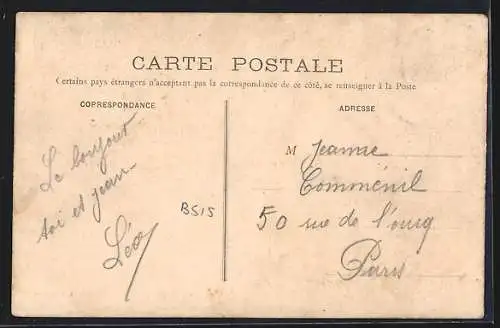 CARTE POSTALE
Certains pays étrangers n'acceptant pas la correspondance de ce côté, se renseigner à la Poste
CORRESPONDANCE
ADRESSE
Le bonjour
toi et jean
Léo
B515
M Jeanne
Comménil
50 rue de l'ourq
Paris